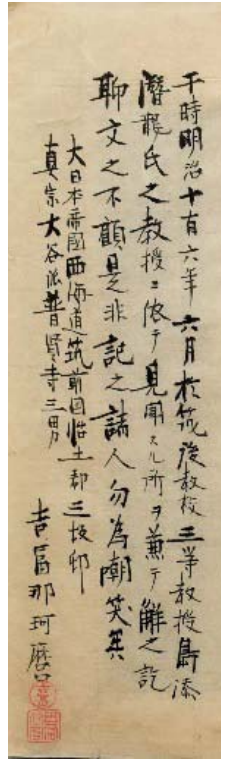 干時明治十有六年六月於筑後教校三等教授島添
潛龍氏之教授ニ依テ見聞スル所ヲ兼テ解之訖
聊文之不顧是非記之諸人勿為潮笑矣
大日本帝國西海道筑前国怡土郡三坂邨
真宗大谷派普賢寺三男
吉富那珂麿